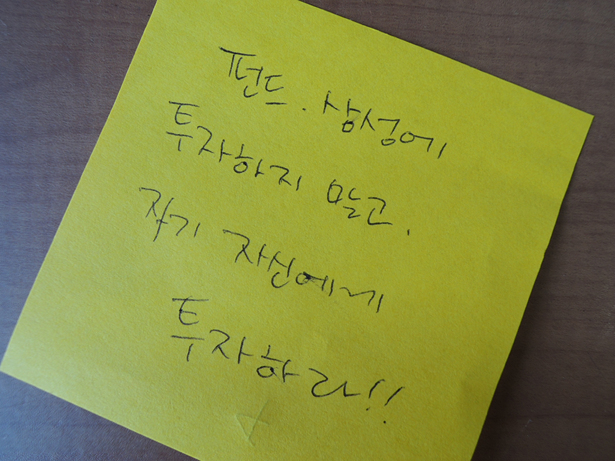 펀드. 삼성에
투자하지 말고.
자기 자신에게
투자하라!!